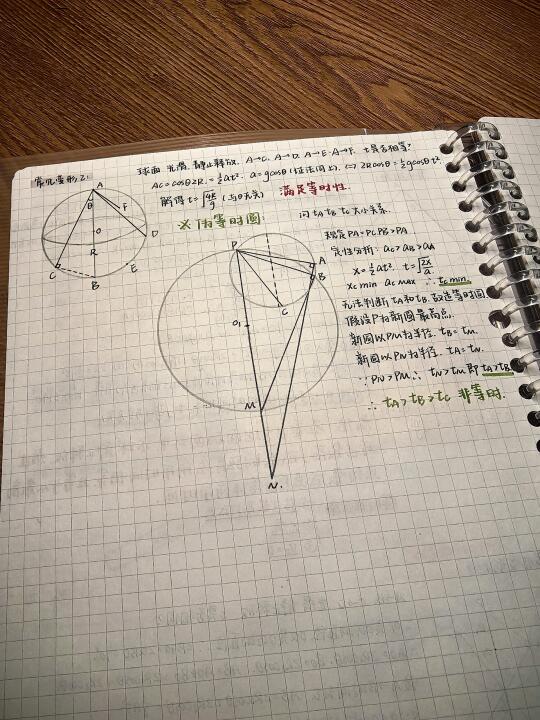 常见变形2:
球面 光滑, 静止释放. A→C. A→D. A→E. A→F. t是否相等?
AC=cosθ2R.=½at². a=gcosθ(证法同上). ⇔ 2Rcosθ=½gcosθt²
解得 t=√(4R/g) (与θ无关) 满足等时性.
※ 何为等时圆
A
θ
F
O
D
R
C
E
B
问 tA tB tC 大小关系.
规定 PA=PC PB>PA
定性分析: aC>aB>aA
x=½at² t=√(2x/a)
xC min aC max ∴ tC min.
无法判断tA和tB. 故造等时圆
假设P为新圆最高点.
新圆以PM为半径. tB=tM.
新圆以PN为半径. tA=tN.
∵ PN>PM ∴ tN>tM 即 tA>tB
∴ tA>tB>tC 非等时.
P
A
B
C
O₁
M
N.